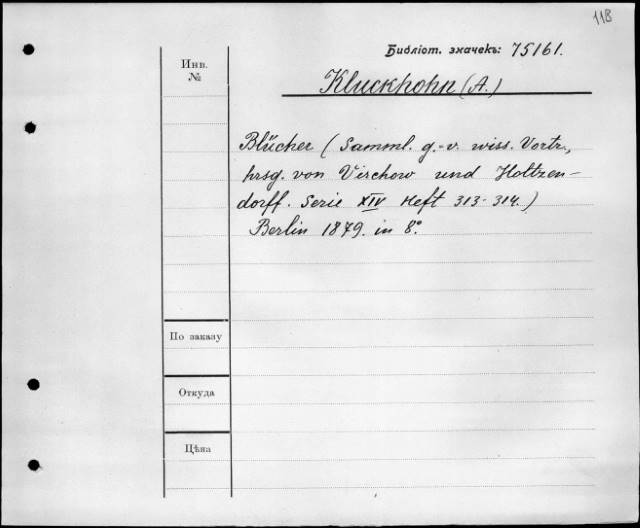 118
Библіот. значекъ: 75161.
Инв.
№
Kluckhohn (A.)
Blücher (Samml. g.-v. wiss. Vortr.,
hrsg. von Virchow und Holtzen-
dorff. Serie XIV Heft 313-314.)
Berlin 1879. in 8°.
По заказу
Откуда
Цѣна